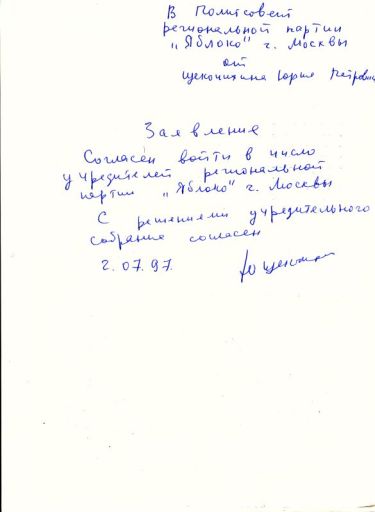 В Политсовет
региональной партии
"Яблоко" г. Москвы
от
Щекочихина Юрия Петровича
Заявление
Согласен войти в число
учредителей региональной
партии "Яблоко" г. Москвы
С решениями учредительного
собрание согласен
2.07.97.